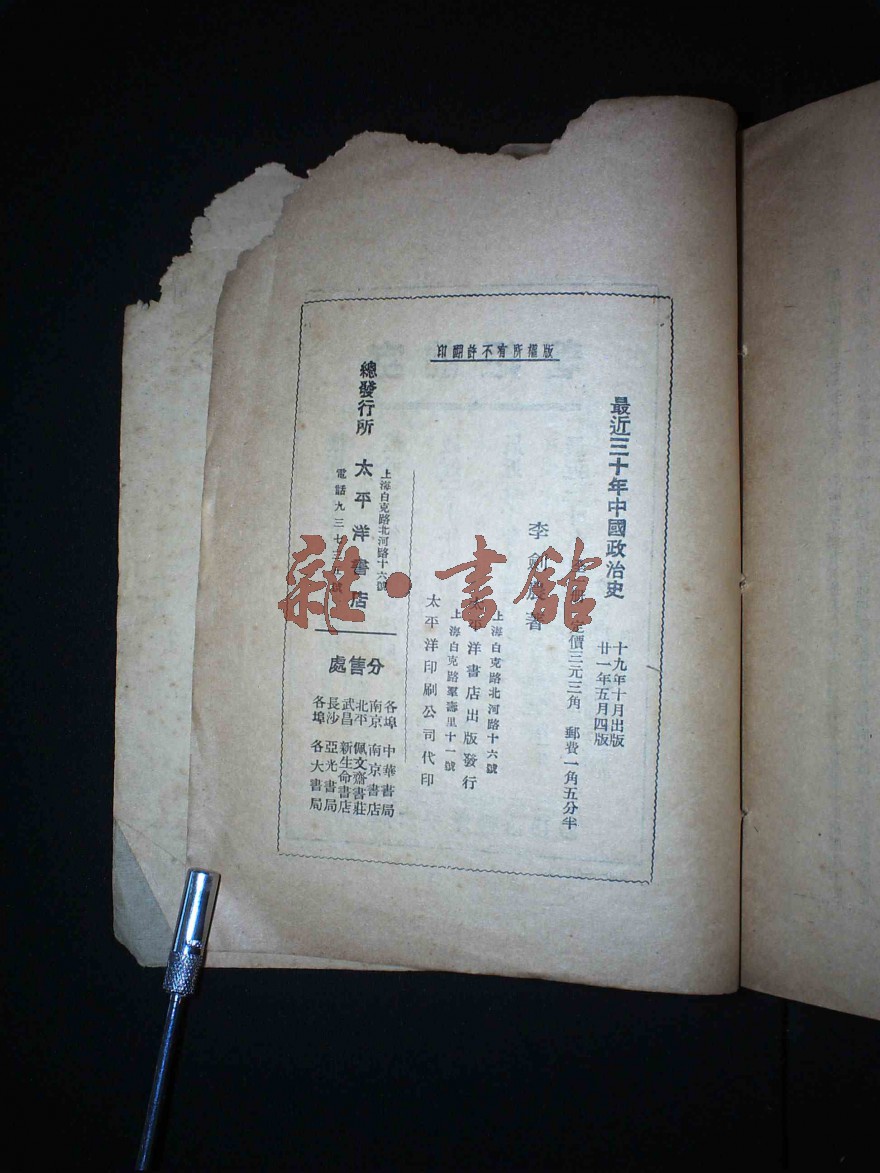 版權所有不許翻印
最近三十年中國政治史
十九年十月出版
廿一年五月四版
定價三元三角 郵費一角五分半
李劍農著
上海白克路北河路十六號
太平洋書店出版發行
上海白克路羣壽里十一號
太平洋印刷公司代印
總發行所 太平洋書店
上海白克路北河路十六號
電話九三七三五號
分售處
各埠 中華書局
南京 南京書店
北平 佩文齋書莊
武昌 新生命書店
長沙 亞光書局
各埠 各大書局
雜·書館